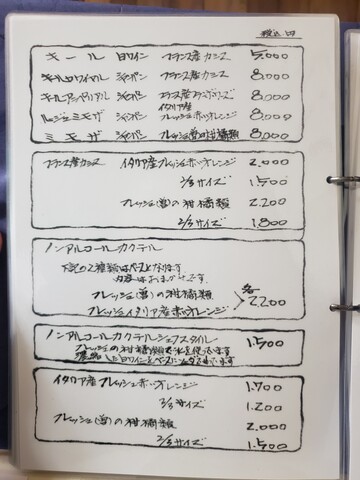 税込 円
キール 白ワイン フランス産カシス 5,000
キールロワイヤル シャンパン フランス産カシス 8,000
キールアンペリアル シャンパン フランス産フランボワーズ 8,000
ルージュミモザ シャンパン イタリア産フレッシュ赤いオレンジ 8,000
ミモザ シャンパン フレッシュ(旬)の柑橘類 8,000
フランス産カシス イタリア産フレッシュ赤いオレンジ 2,000
2/3サイズ 1,500
フレッシュ(旬)の柑橘類 2,200
2/3サイズ 1,800
ノンアルコールカクテル
下記の2種類はベースとなります
内容はおまかせです
フレッシュ(旬)の柑橘類
フレッシュイタリア産赤いオレンジ
各 2,200
ノンアルコールカクテルシェフスタイル 1,500
フレッシュの柑橘類
白ワインをベースに
イタリア産フレッシュ赤いオレンジ 1,700
2/3サイズ 1,200
フレッシュ(旬)の柑橘類 2,000
2/3サイズ 1,500